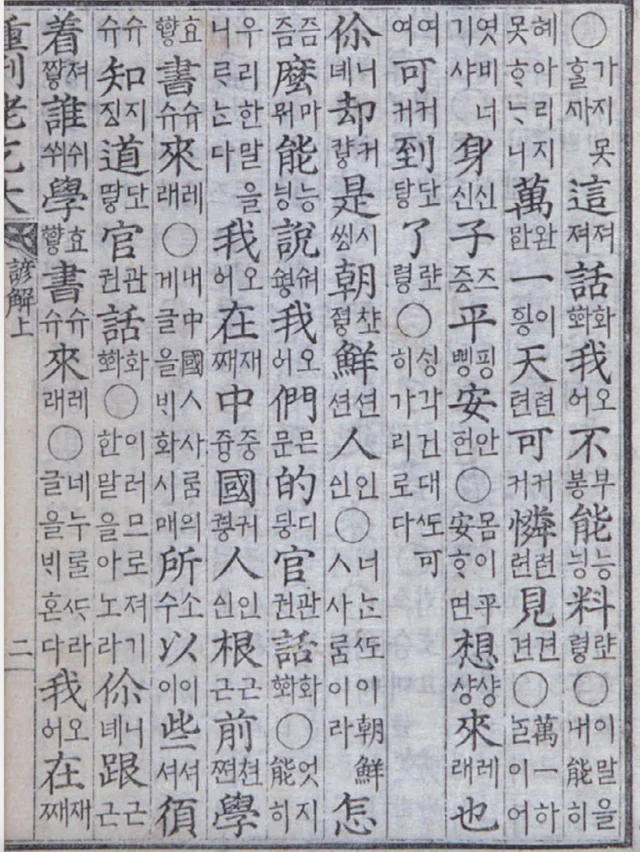 ○가지못홀ᄭᅡ這져져話화화我오어不부붕能능닝料럎령○이말을내能히
혜아리지못ᄒᆞᄂᆞ니萬완만一이힝天텬텬可커커憐련련見견견○萬一하ᄂᆞᆯ이어
엿비너기샤身신신子즈증平핑삥安안헌○몸이平安ᄒᆞ면想샹샹來레래也
여여可커커到닾당了럎령○싱각건대ᄯᅩ可히가리로다
伱니녜却커컁是시씽朝챺쪙鮮션션人인신○너ᄂᆞᆫᄯᅩ이朝鮮人사ᄅᆞᆷ이라怎
즘즘麼마뭐能능닝說숴쉉我오어們믄문的디딩官관권話화화○엇지能히
우리한말을니ᄅᆞᄂᆞ다我오어在재째中즁즁國귀궝人인신根근근前쳔쪈學
효ᅘᅣᇢ書슈슈來레래○내中國人사ᄅᆞᆷ의게글을ᄇᆡ화시매所소수以이이些셔셔須
슈슈知지징道닾땋官관권話화화○이러므로져기한말을아노라伱니녜跟근근
着져쨯誰쉬쒸學효ᅘᅣᇢ書슈슈來레래○네누룰ᄯᆞ라글을ᄇᆡ혼다我오어在재째
重刊老乞大 諺解上 二